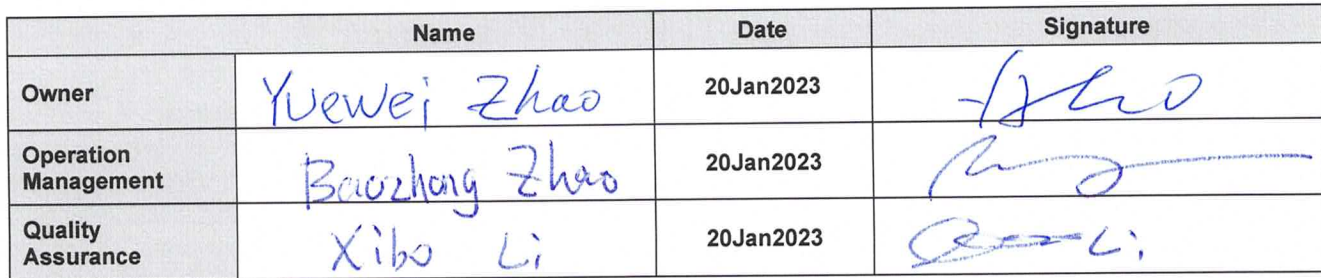 Name Date Signature
Owner Yuewei Zhao 20Jan2023
Operation
Management Baozhong Zhao 20Jan2023
Quality
Assurance Xibo Li 20Jan2023 Li